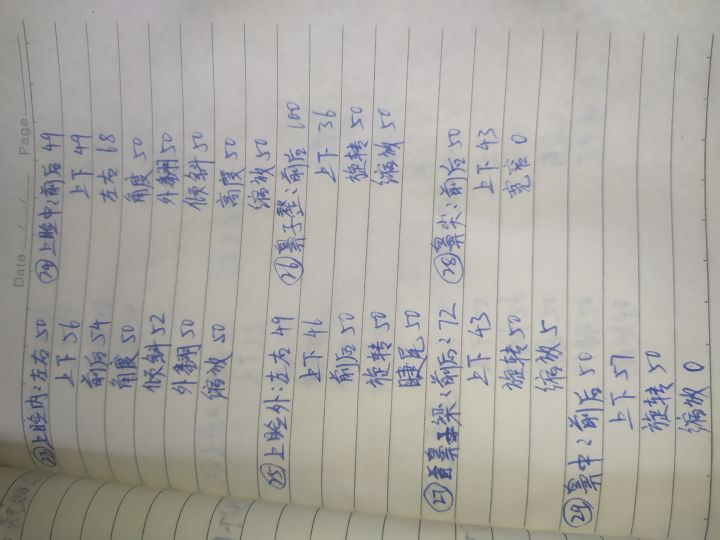 Date / / Page
㉓上脸内:左右 50
上下 56
前后 54
角度 50
倾斜 52
外翻 50
缩放 50
㉔上脸中:前后 49
上下 49
左右 68
角度 50
外翻 50
倾斜 50
高度 50
缩放 50
㉕上脸外:左右 49
上下 46
前后 50
旋转 50
睫尾 50
㉖鼻子整:前后 100
上下 36
旋转 50
缩放 50
㉗鼻梁:前后:72
上下 43
旋转 50
缩放 5
㉘鼻尖:前后 50
上下 43
宽窄 0
㉙鼻中:前后 50
上下 57
旋转 50
缩放 0